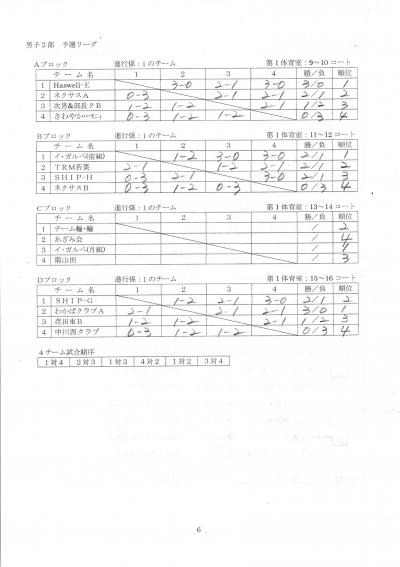 男子2部　予選リーグ
Aブロック　進行係：1のチーム　第1体育室：9～10コート
チーム名　1　2　3　4　勝／負　順位
1　Haswell-E　3-0　2-1　3-0　3/0　1
2　ネクサスA　0-3　2-1　2-1　2/1　2
3　次男&部長クB　1-2　1-2　2-1　1/2　3
4　さわやか　0-3　1-2　1-2　0/3　4
Bブロック　進行係：1のチーム　第1体育室：11～12コート
チーム名　1　2　3　4　勝／負　順位
1　イ・ガルベ(宙組)　1-2　3-0　3-0　2/1　1
2　TRM若葉　2-1　1-2　2-1　2/1　2
3　SHIP-H　0-3　2-1　3-0　2/1　3
4　ネクサスB　0-3　1-2　0-3　0/3　4
Cブロック　進行係：1のチーム　第1体育室：13～14コート
チーム名　1　2　3　4　勝／負　順位
1　チーム輪・輪　/　2
2　あざみ会　/　4
3　イ・ガルベ(月組)　/　1
4　南山田　/　3
Dブロック　進行係：1のチーム　第1体育室：15～16コート
チーム名　1　2　3　4　勝／負　順位
1　SHIP-G　1-2　2-1　3-0　2/1　2
2　わかばクラブA　2-1　2-1　2-1　3/0　1
3　荏田東B　1-2　1-2　2-1　1/2　3
4　中川西クラブ　0-3　1-2　1-2　0/3　4
4チーム試合順序
1対4　2対3　1対3　4対2　1対2　3対4
6